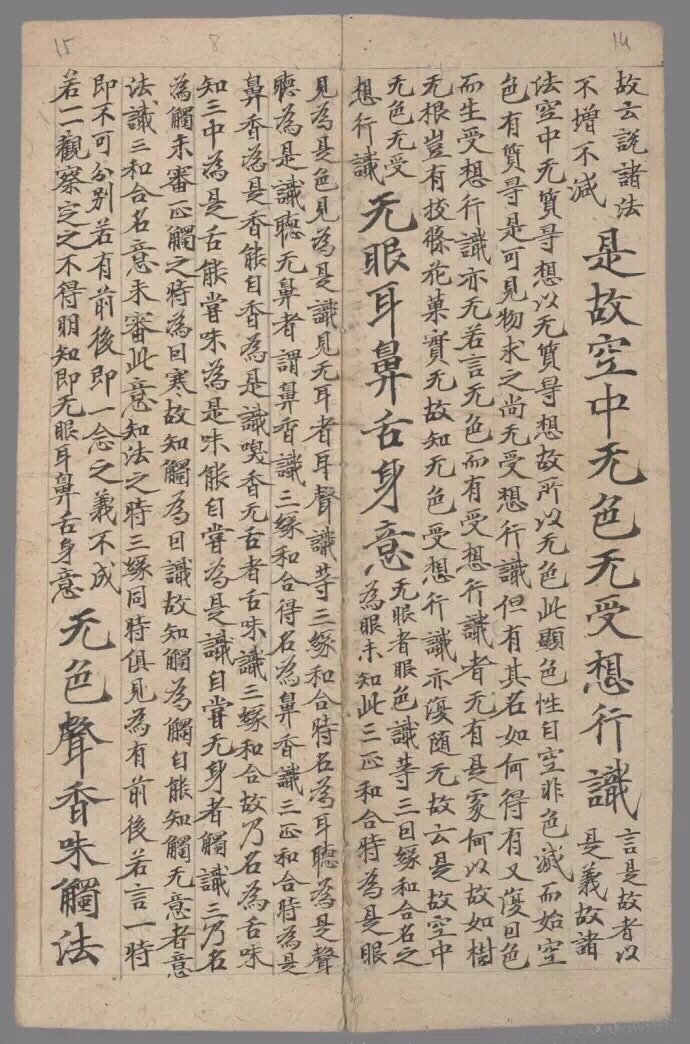 14
故云說諸法
不增不減
是故空中无色无受想行識
言是故者以
是義故諸
法空中无質导想以无質导想故所以无色此顯色性自空非色滅而始空
色有質导是可見物求之尚无受想行識但有其名如何得有又復因色
而生受想行識亦无若言无色而有受想行識者无有是處何以故如樹
无根豈有枝條花菓實无故知无色受想行識亦復随无故云是故空中
无色无受
想行識
无眼耳鼻舌身意
无眼者眼色識等三因緣和合名之
為眼未知此三正和合時為是眼
8
15
見為是色見為是識見无耳者耳聲識等三緣和合時名為耳聽為是聲
聽為是識聽无鼻者謂鼻香識三緣和合得名為鼻香識三正和合時為是
鼻香為是香能自香為是識嗅香无舌者舌味識三緣和合故乃名為舌味
知三中為是舌能甞味為是味能自甞為是識自甞无身者觸識三乃名
為觸未審正觸之時為因寒故知觸為因識故知觸為觸自能知觸无意者意
法識三和合名意未審此意知法之時三緣同時俱見為有前後若言一時
即不可分別若有前後即一念之義不成
若二觀察定之不得明知即无眼耳鼻舌身意
无色聲香味觸法